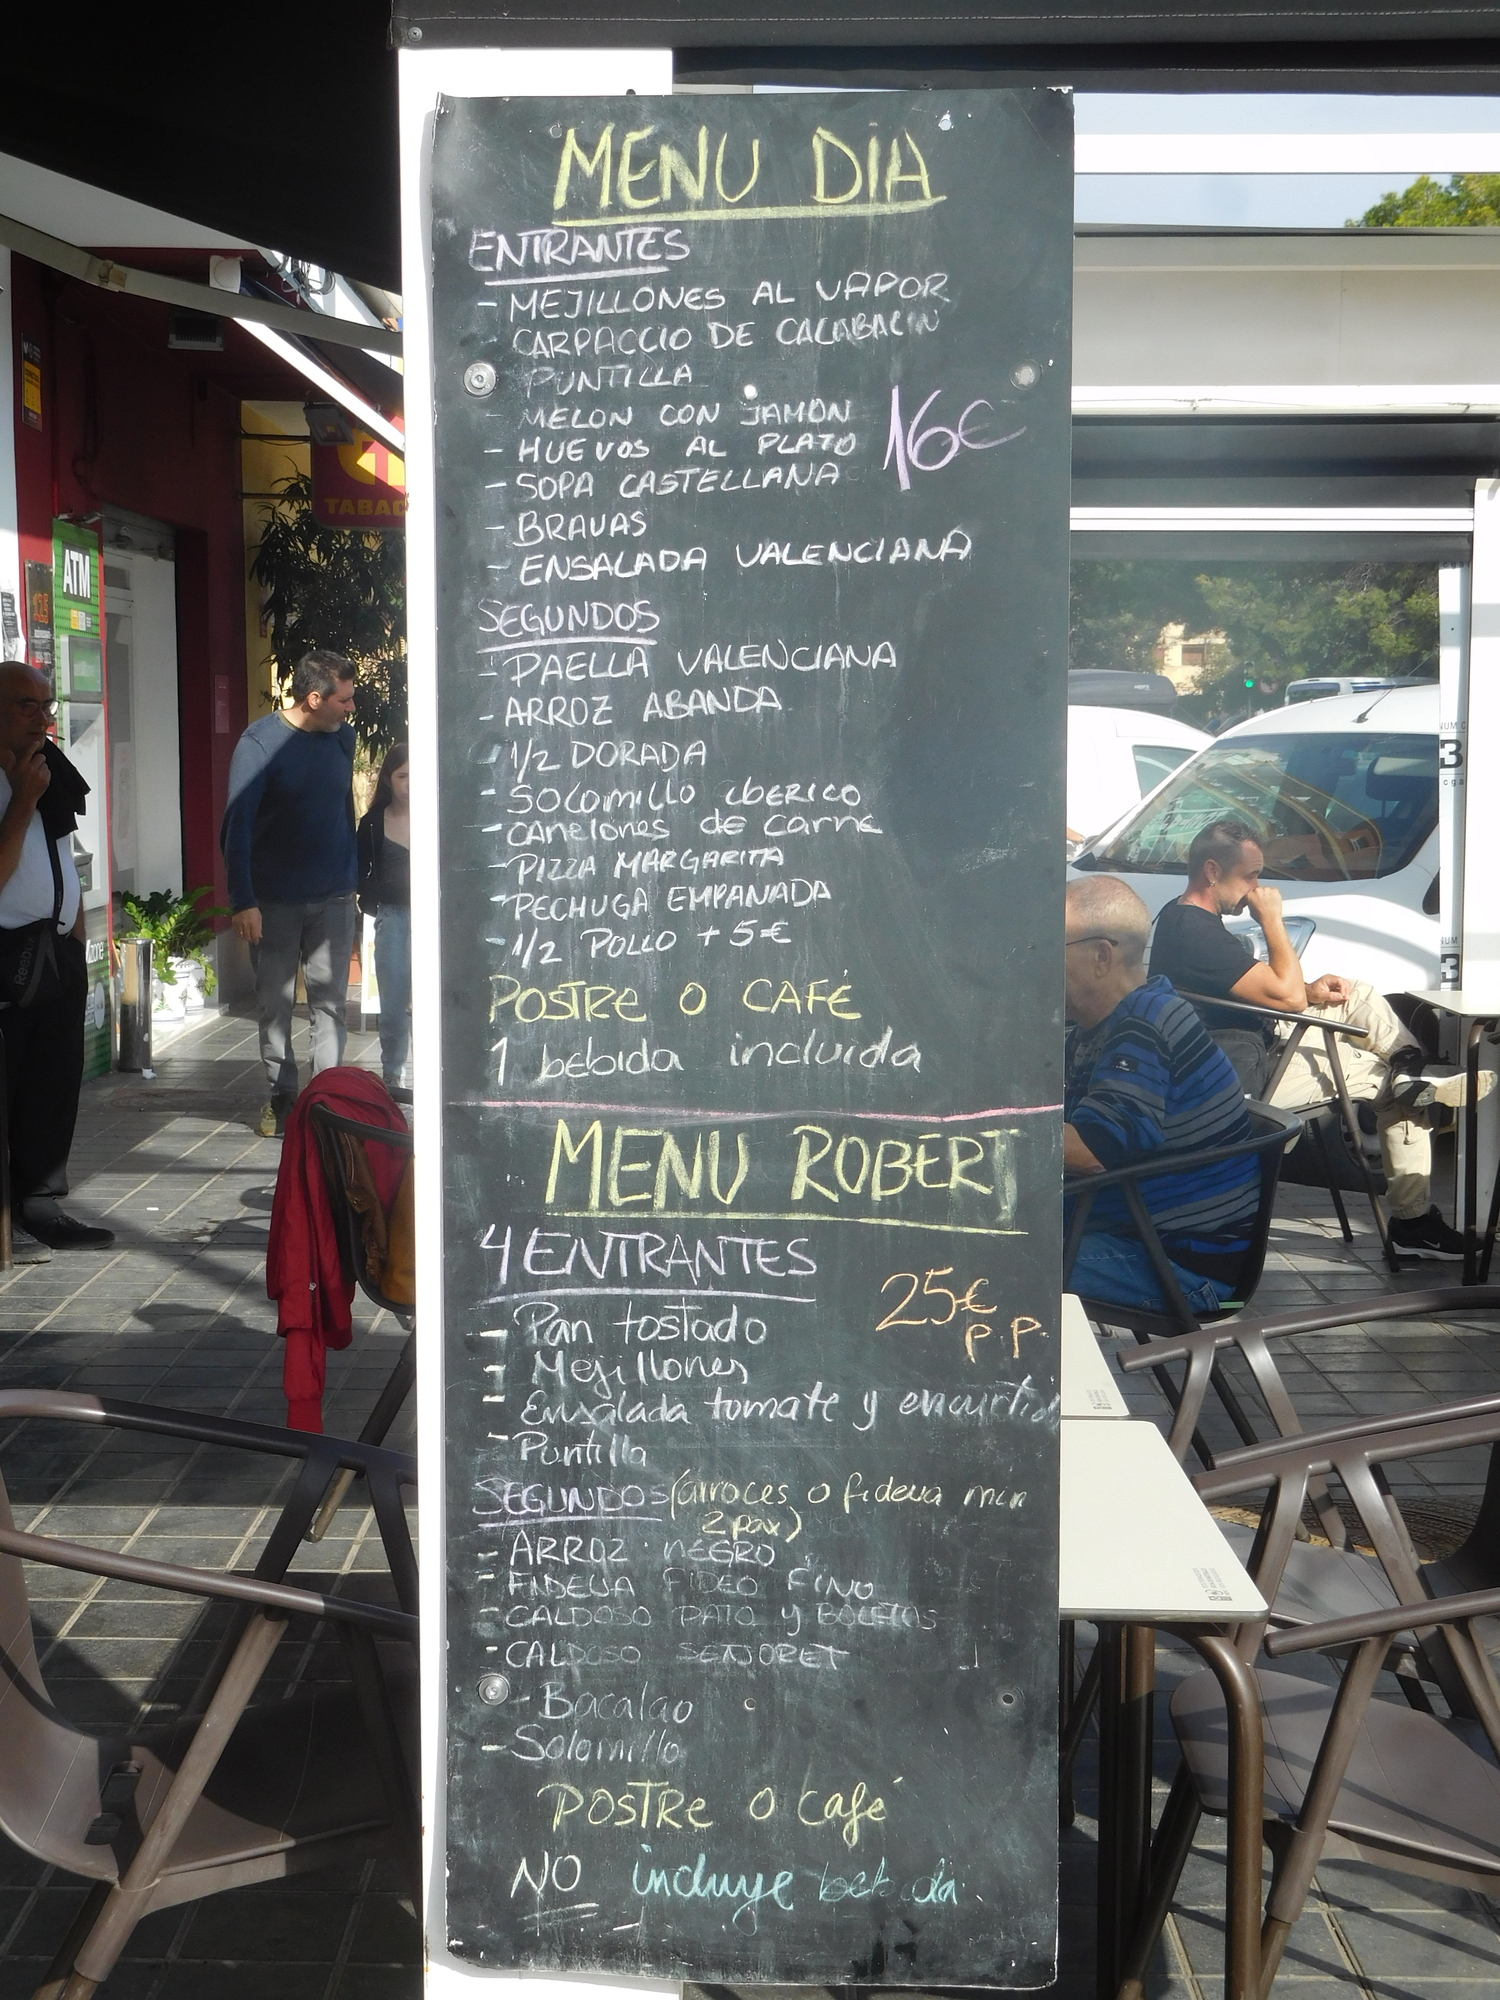 MENU DIA
ENTRANTES
- MEJILLONES AL VAPOR
CARPACCIO DE CALABACIN
PUNTILLA
- MELON CON JAMON
- HUEVOS AL PLATO
16€
- SOPA CASTELLANA
- BRAVAS
- ENSALADA VALENCIANA
SEGUNDOS
- PAELLA VALENCIANA
- ARROZ ABANDA
- 1/2 DORADA
- SOLOMILLO IBERICO
- CANELONES DE CARNE
- PIZZA MARGARITA
- PECHUGA EMPANADA
- 1/2 POLLO + 5€
POSTRE O CAFÉ
1 bebida incluida
MENU ROBERT
4 ENTRANTES
25€
P.P.
- Pan tostado
- Mejillones
- Ensalada tomate y encurtidos
- Puntilla
SEGUNDOS (arroces o fideua min
2 pax)
- ARROZ NEGRO
- FIDEUA FIDEO FINO
- CALDOSO PATO y BOLETUS
- CALDOSO SENJORET
- Bacalao
- Solomillo
POSTRE o café
NO incluye bebida
TABAC
ATM
Reebok
3
3